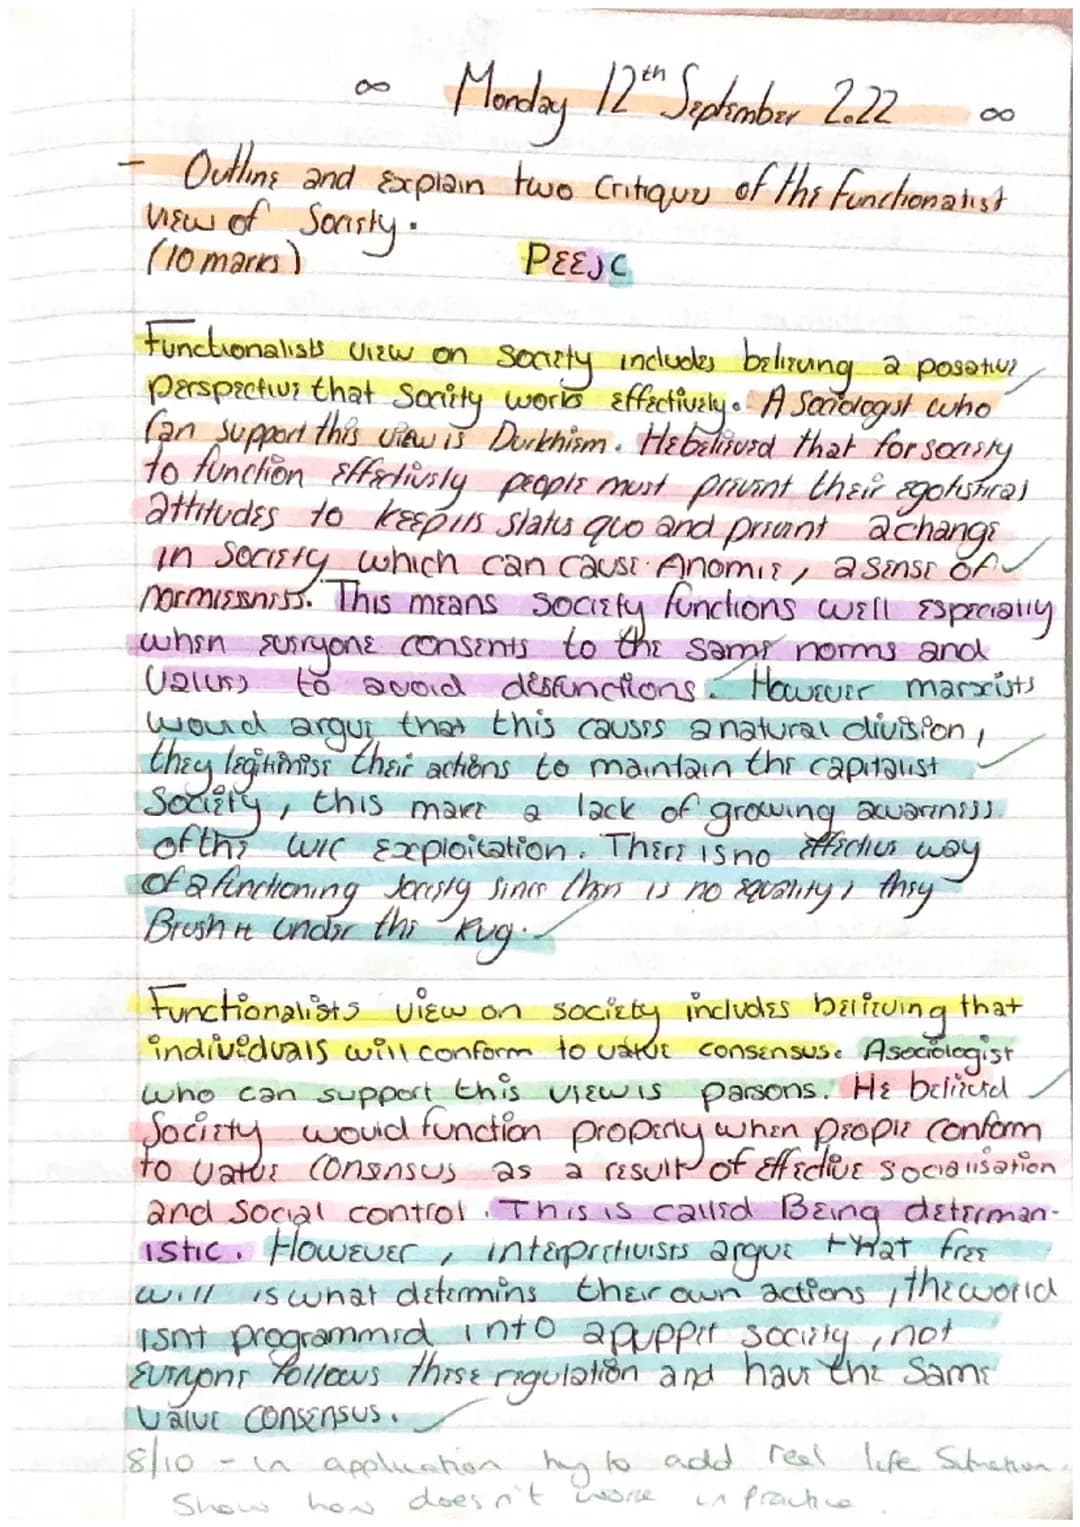 ∞ Monday 12th September 2.22 ∞
- Outline and Explain two Critiques of the Functionalist
View of Society.
(10 marks) PEEJC
Functionalists View on Society includes believing a posative
perspective that Society works Effectively. A Sociologist who
Can support this view is Durkhism. He believed that for society
to function Effectively people must prevent their egotistical
attitudes to keep its status quo and prevent a change
in Society which can cause Anomie, a sense of
normlessness. This means Society functions well Especially
when everyone consents to the same norms and
Values to avoid desfunctions. However marxists
would argue that this causes a natural division,
they legitimise their actions to maintain the capitalist
Society, this make a lack of growing awareness
of the W/C Exploitation. There is no Effective way
of a functioning society since there is no equality, they
Brush it under the Rug.
Functionalists view on society includes believing that
individuals will conform to value consensus. A sociologist
who can support this view is parsons. He believed
Society would function properly when people conform
to value consensus as a result of Effective socialisation
and Social control. This is called Being determan-
istic. However, interpretivists argue that free
will is what determins their own actions, the world
isnt programmed into a puppet society, not
Everyone follows these regulation and have the same
value consensus.
8/10 - in application try to add real life Situation.
Show how doesn't work in practice.